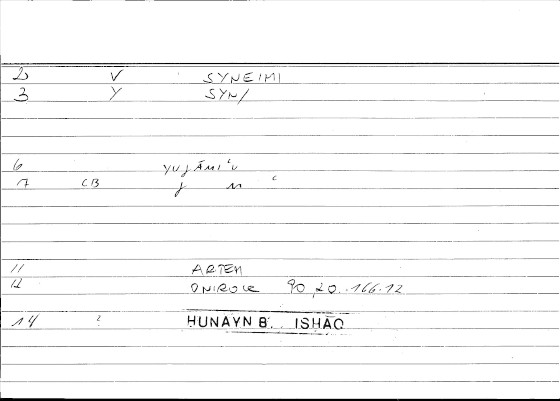 2 V SYNEIMI
3 Y SYN/
6 yuǧāmiʿu
7 CB ǧ m ʿ
11 ARTEM
12 ONIROCR 90,20.166.12
14 ? HUNAYN B. ISHĀQ